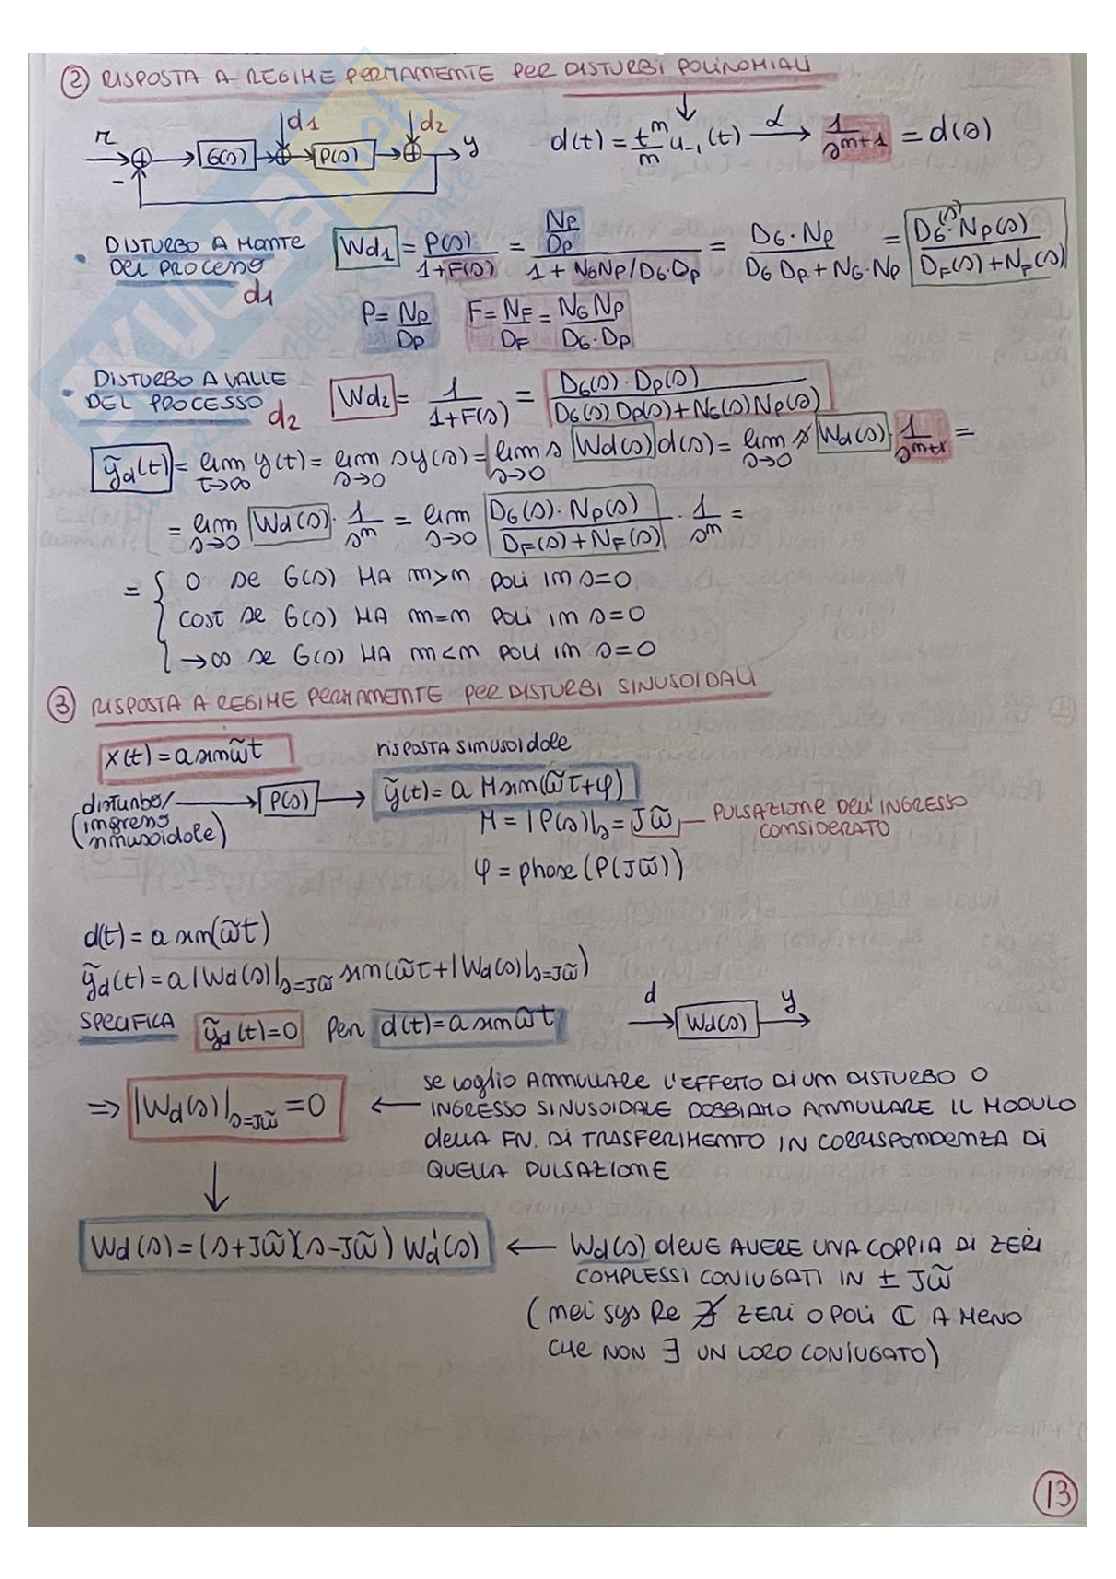 ② RISPOSTA A REGIME PERMANENTE PER DISTURBI POLINOMIALI
r G(s) d1 P(s) d2 y
-
d(t) = t^m/m u₋₁(t) —L→ 1/s^(m+1) = d(s)
• DISTURBO A MONTE
DEL PROCESSO
d1
Wd1 = P(s)/(1+F(s)) = (NP/DP)/(1 + NGNP/DG·DP) = DG·NP/(DG DP + NG·NP) = DG(s)·NP(s)/(DF(s)+NF(s))
P = NP/DP F = NF/DF = NG NP/(DG·DP)
• DISTURBO A VALLE
DEL PROCESSO d2
Wd2 = 1/(1+F(s)) = DG(s)·DP(s)/(DG(s) DP(s)+NG(s) NP(s))
ỹd(t) = lim t→∞ y(t) = lim s→0 s y(s) = lim s→0 s Wd(s) d(s) = lim s→0 s Wd(s) · 1/s^(m+1) =
= lim s→0 Wd(s) · 1/s^m = lim s→0 DG(s)·NP(s)/(DF(s)+NF(s)) · 1/s^m =
= { 0 SE G(s) HA m>m POLI IM s=0
COST SE G(s) HA m=m POLI IM s=0
→∞ SE G(s) HA m<m POLI IM s=0
③ RISPOSTA A REGIME PERMAMENTE PER DISTURBI SINUSOIDALI
x(t) = a sin ω̃t
risposta sinusoidale
(disturbo/ ingresso sinusoidale) → P(s) → ỹ(t) = a M sin(ω̃t+φ)
M = |P(s)|s=Jω̃ — PULSAZIONE DELL'INGRESSO
CONSIDERATO
φ = phase(P(Jω̃))
d(t) = a sin(ω̃t)
ỹd(t) = a |Wd(s)|s=Jω̃ sin(ω̃t + |Wd(s)|s=Jω̃)
SPECIFICA ỹd(t)=0 Per d(t)=a sin ω̃t
d → Wd(s) → y
⇒ |Wd(s)|s=Jω̃ = 0
← se voglio ANNULLARE L'EFFETTO DI UN DISTURBO O
INGRESSO SINUSOIDALE DOBBIAMO ANNULLARE IL MODULO
della FN. DI TRASFERIMENTO IN CORRISPONDENZA DI
QUELLA PULSAZIONE
↓
Wd(s) = (s+Jω̃)(s-Jω̃) Wd'(s)
← Wd(s) deve AVERE UNA COPPIA DI ZERI
COMPLESSI CONIUGATI IN ± Jω̃
(nei sys Re ∄ ZERI O POLI ℂ A MENO
CHE NON ∃ UN LORO CONIUGATO)
13